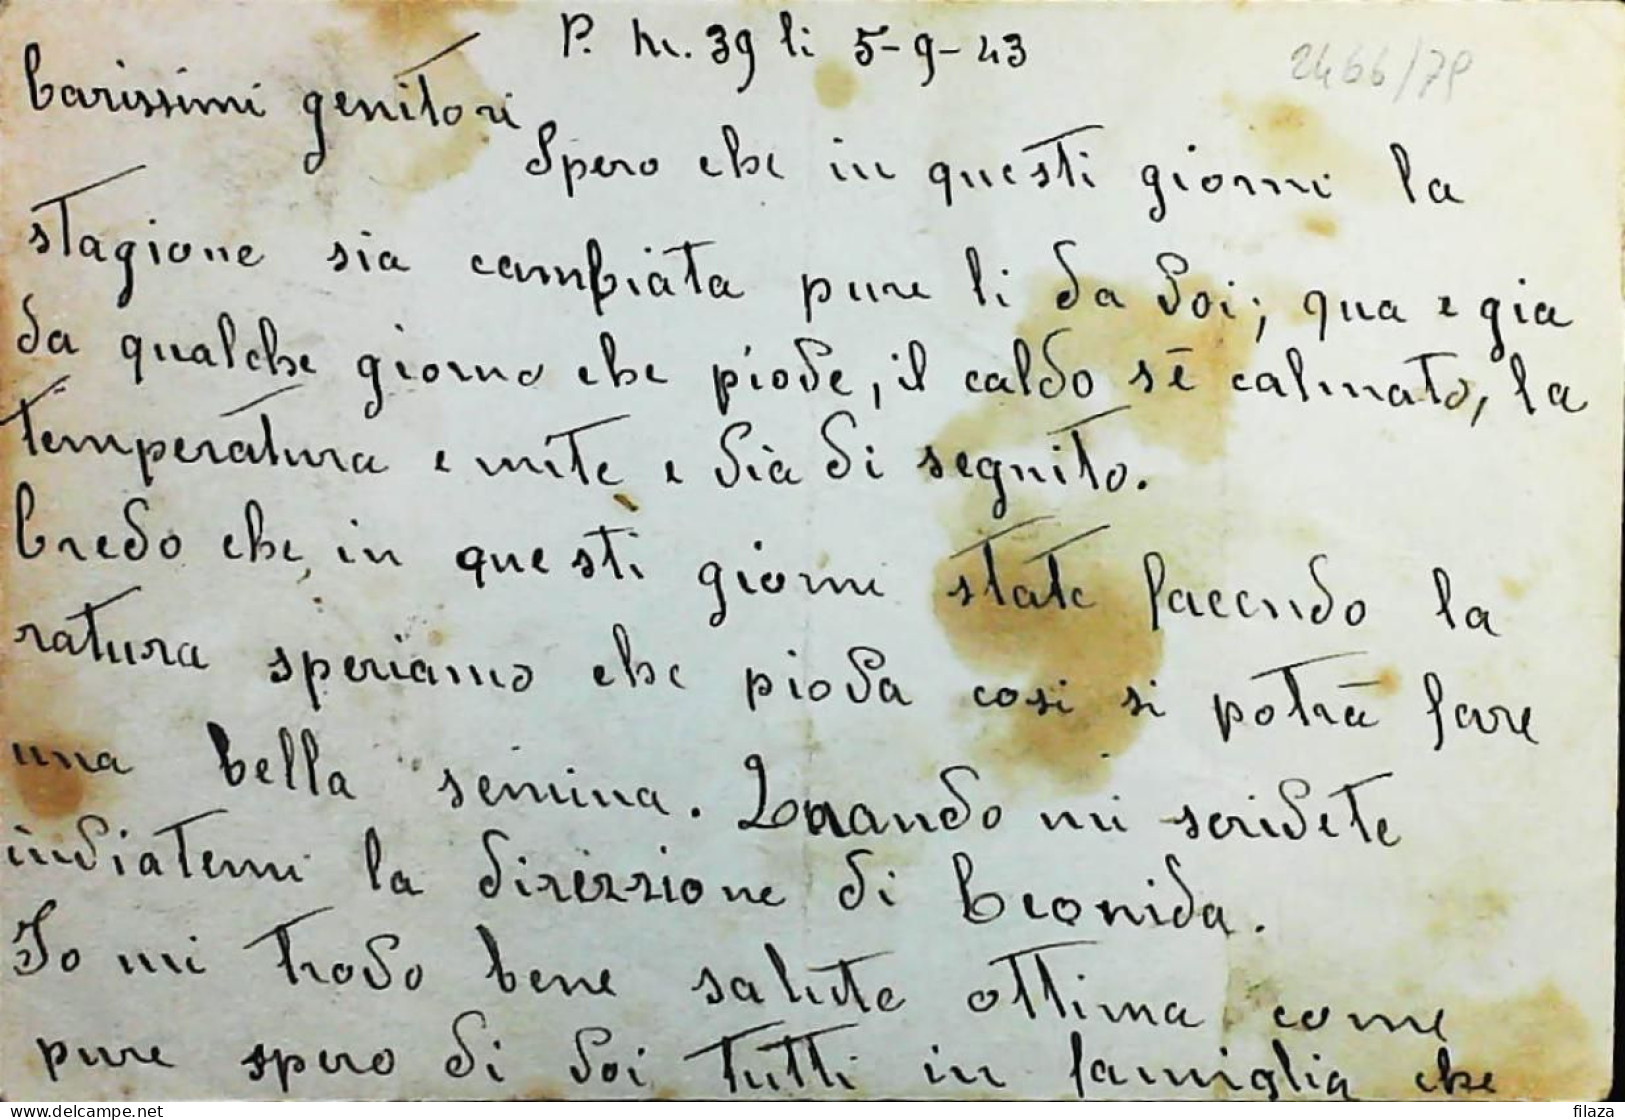 P. M. 39 li 5-9-43
2466/79
Carissimi genitori
Spero che in questi giorni la
stagione sia cambiata pure li da voi; qua e gia
da qualche giorno che piove, il caldo s'è calmato, la
temperatura e mite e via di seguito.
Credo che, in questi giorni state facendo la
ratura speriamo che piova cosi si potrà fare
una bella semina. Quando mi scrivete
inviatemi la direzzione di Leonida.
Io mi trovo bene salute ottima come
pure spero di voi tutti in famiglia che
filaza